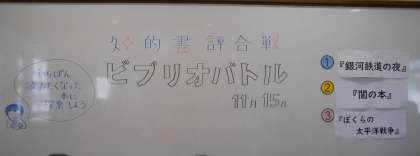 知的書評合戦
ビブリオバトル
11月15日
いちばん
読みたくなった
本に
投票しよう
① 『銀河鉄道の夜』
② 『闇の本』
③ 『ぼくらの
太平洋戦争』